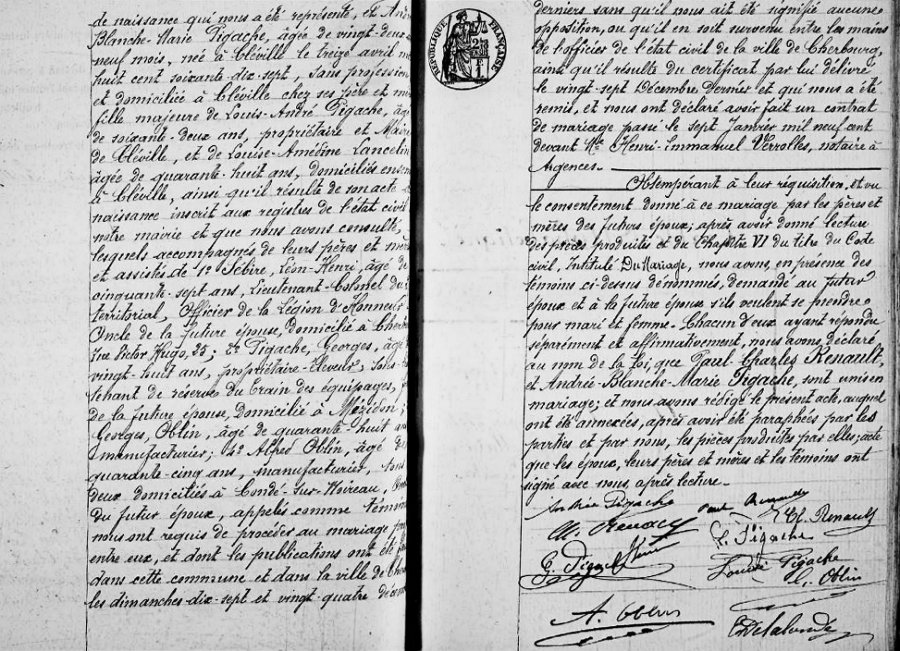 de naissance qui nous a été représenté, et André
Blanche-Marie Pigache, âgée de vingt-deux
neuf mois, née à Cléville le treize avril m
huit cent soixante-dix-sept, sans profession
et domiciliée à Cléville chez ses père et m
fille majeure de Louis-André Pigache, âg
de soixante-deux ans, propriétaire et Maire
de Cléville, et de Louise-Amédine Lancelin
âgée de quarante-huit ans, domiciliés ensem
à Cléville, ainsi qu'il résulte de son acte
naissance inscrit aux registres de l'état civil
notre mairie et que nous avons consulté,
lesquels accompagnés de leurs pères et mè
et assistés de 1º Sébire, Léon-Henri, âgé de
cinquante-sept ans, Lieutenant-Colonel du
territorial, Officier de la Légion d'Honneur
Oncle de la future épouse, domicilié à Cherb
rue Victor Hugo, 35; 2º Pigache, Georges, âg
vingt-huit ans, propriétaire-éleveur, Sous-
téhant de réserve du train des équipages,
de la future épouse, domicilié à Mézidon;
Georges, Oblin, âgé de quarante-huit an
manufacturier; 4º Alfred Oblin, âgé de
quarante-cinq ans, manufacturier, tous
deux domiciliés à Condé-sur-Noireau,
du futur époux, appelés comme témoins
nous ont requis de procéder au mariage p
entre eux, et dont les publications ont été
dans cette commune et dans la ville de Che
les dimanches dix-sept et vingt-quatre déc
RÉPUBLIQUE FRANÇAISE
derniers sans qu'il nous ait été signifié aucune
opposition, ou qu'il en soit survenu entre les mains
de l'officier de l'état civil de la ville de Cherbourg,
ainsi qu'il résulte du certificat par lui délivré
le vingt-sept Décembre dernier et qui nous a été
remis, et nous ont déclaré avoir fait un contrat
de mariage passé le sept Janvier mil neuf cent
devant Me Henri-Emmanuel Verrolles, notaire à
Argences.
Obtempérant à leur réquisition, et vu
le consentement donné à ce mariage par les pères et
mères des futurs époux; après avoir donné lecture
des pièces produites et du Chapitre VI du titre du Code
civil, Intitulé Du Mariage, nous avons, en présence des
témoins ci-dessus dénommés, demandé au futur
époux et à la future épouse s'ils veulent se prendre
pour mari et femme. Chacun d'eux ayant répondu
séparément et affirmativement, nous avons déclaré
au nom de la loi, que Paul-Charles Renault,
et Andrée-Blanche-Marie Pigache, sont unis en
mariage; et nous avons rédigé le présent acte, auquel
ont été annexées, après avoir été paraphées par les
parties et par nous, les pièces produites par elles; acte
que les époux, leurs pères et mères et les témoins ont
signé avec nous, après lecture.
Andrée Pigache Paul Renault
Renault
Pigache
G. Pigache
Louise Pigache
Oblin
A. Oblin
Delalande